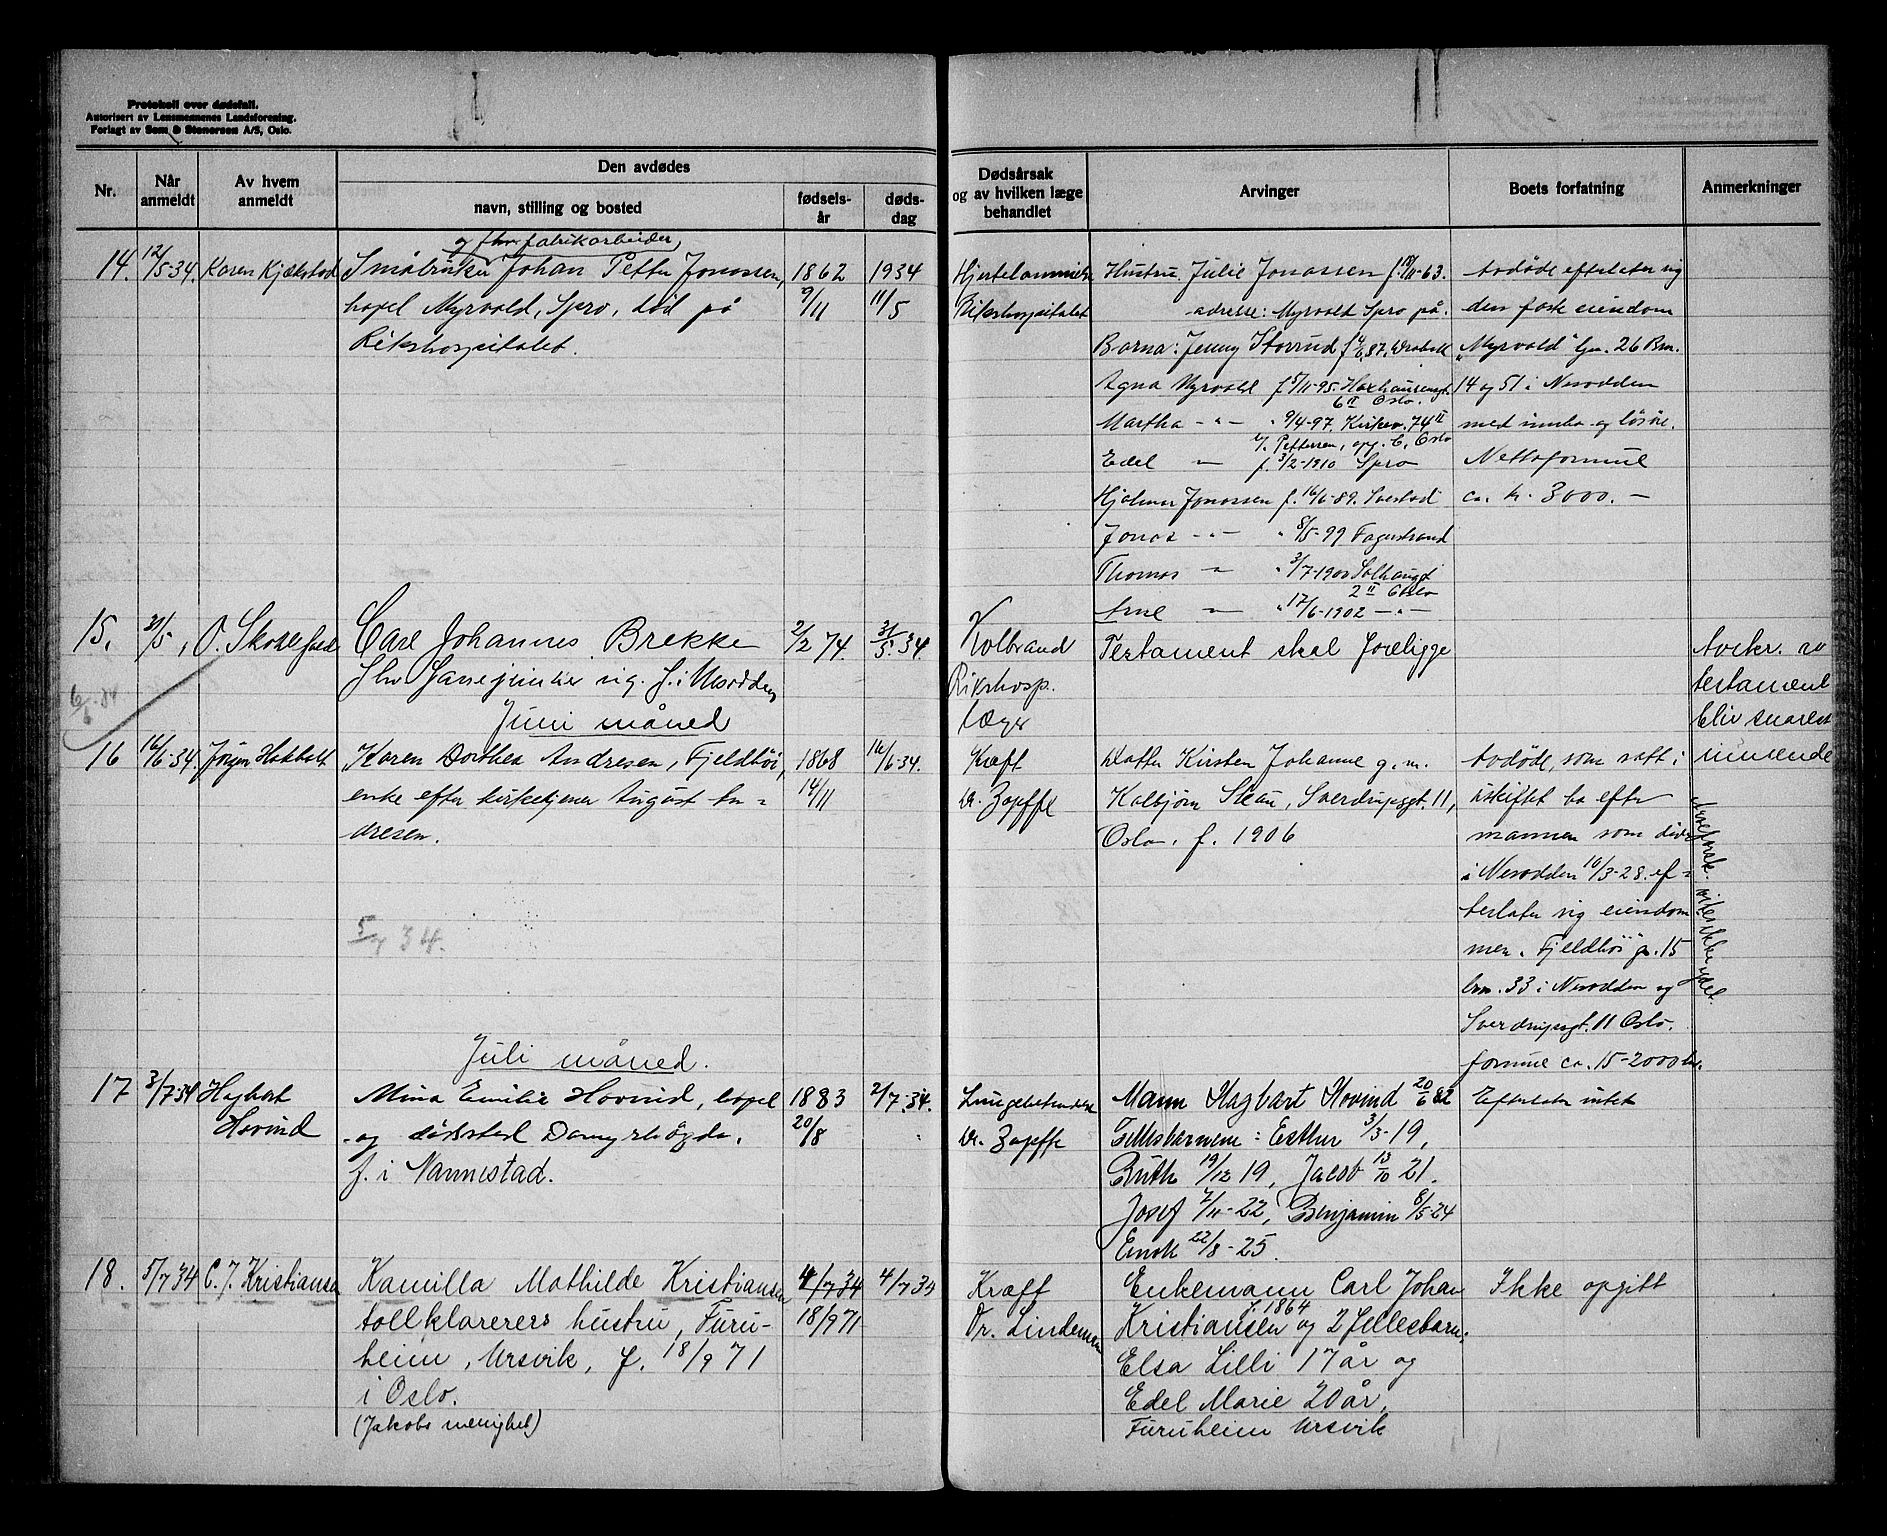 Protokoll over dødsfall.
Autorisert av Lensmennenes Landsforening.
Forlagt av Sem & Stenersen A/S, Oslo.
Nr.
Når anmeldt
Av hvem anmeldt
Den avdødes
navn, stilling og bosted
fødsels-år
døds-dag
Dødsårsak og av hvilken læge behandlet
Arvinger
Boets forfatning
Anmerkninger
14.
12/5-34.
Karen Kjækstad
og fhv. fabrikarbeider,
Småbruker Johan Petter Jonassen,
bopel Myrvold, Spro, død på
Rikshospitalet.
1862
9/11
1934
11/5
Rikshospitalet
Hustru Julie Jonassen
adresse: Myrvold Spro på.
Barna: Jenny Storrud
Agna Myrvold f. 5/11-95. Haxthausensgt.
6 II Oslo.
Martha - " - " 9/4-97. Kirkev. 74 II
c/o Pettersen, opg. C, Oslo
Edel " f. 3/2-1910 Spro
Hjalmar Jonassen f. 16/6-89. Svestad
Jonas - " - " 8/5-99 Fagerstrand
Thomas " " 3/7-1900 Solhauggt
2 II Oslo
Arne " " 17/6-1902 - " -
Avdøde efterlater sig
den faste eiendom
"Myrvold" gn. 26 Bn.
14 og 51 i Nesodden
med innbo og løsøre.
Nettoformue
ca. kr. 3000. -
15.
31/5
O.
Carl Johannes Brekke
fhv. f. i Nesodden
2/2 74.
31/5. 34.
Kolbrand
Rikshosp.
læger
Testament skal foreligge
Avskr. av
testament
bliv snarest
innsende
6/6-34
Juni måned
16
16/6-34.
Jørgen Hakholt
Karen Dorthea Andresen, Fjeldhøi,
enke efter kirketjener August An=
dresen.
1868
14/11
16/6-34.
Kræft
Dr. Zapffe
Datter Kirsten Johanne g. m.
Kolbjørn Skau, Sverdrupsgt. 11,
Oslo. f. 1906
Avdøde, som satt i
uskiftet bo efter
mannen som døde
i Nesodden 16/3-28. ef=
terlater sig eiendom
men "Fjeldhøi" gn. 15
brn. 33 i Nesodden og
Sverdrupsgt. 11 Oslo.
formue ca. 15-2000 kr.
5/7 34.
Juli måned.
17
3/7-34
Hagbart
Hovind
Mina Emilie Hovind, bopel
og dødssted
f. i Nannestad.
1883
20/8
2/7-34.
Lungebetendelse
Dr. Zapffe
Mann Hagbart Hovind 20/6 82
Fellesbarnene: Esther 3/3-19,
Ruth 19/12 19, Jacob 13/10 21.
Josef 7/11-22, Benjamin 8/5-24
Enok 22/8-25.
Efterlater intet
18.
5/7 34
C. J. Kristiansen
Kamilla Mathilde Kristiansen
tollklarerers hustru, Furu-
heim, Ursvik, f. 18/9 71
i Oslo.
(Jakobs menighet)
4/7 34
18/9 71
4/7 34
Kræft
Dr. Lindeman
Enkemann Carl Johan
f. 1864
Kristiansen og 2 fellesbarn.
Elsa Lilli 17 år og
Edel Marie 20 år,
Furuheim Ursvik
Ikke opgitt